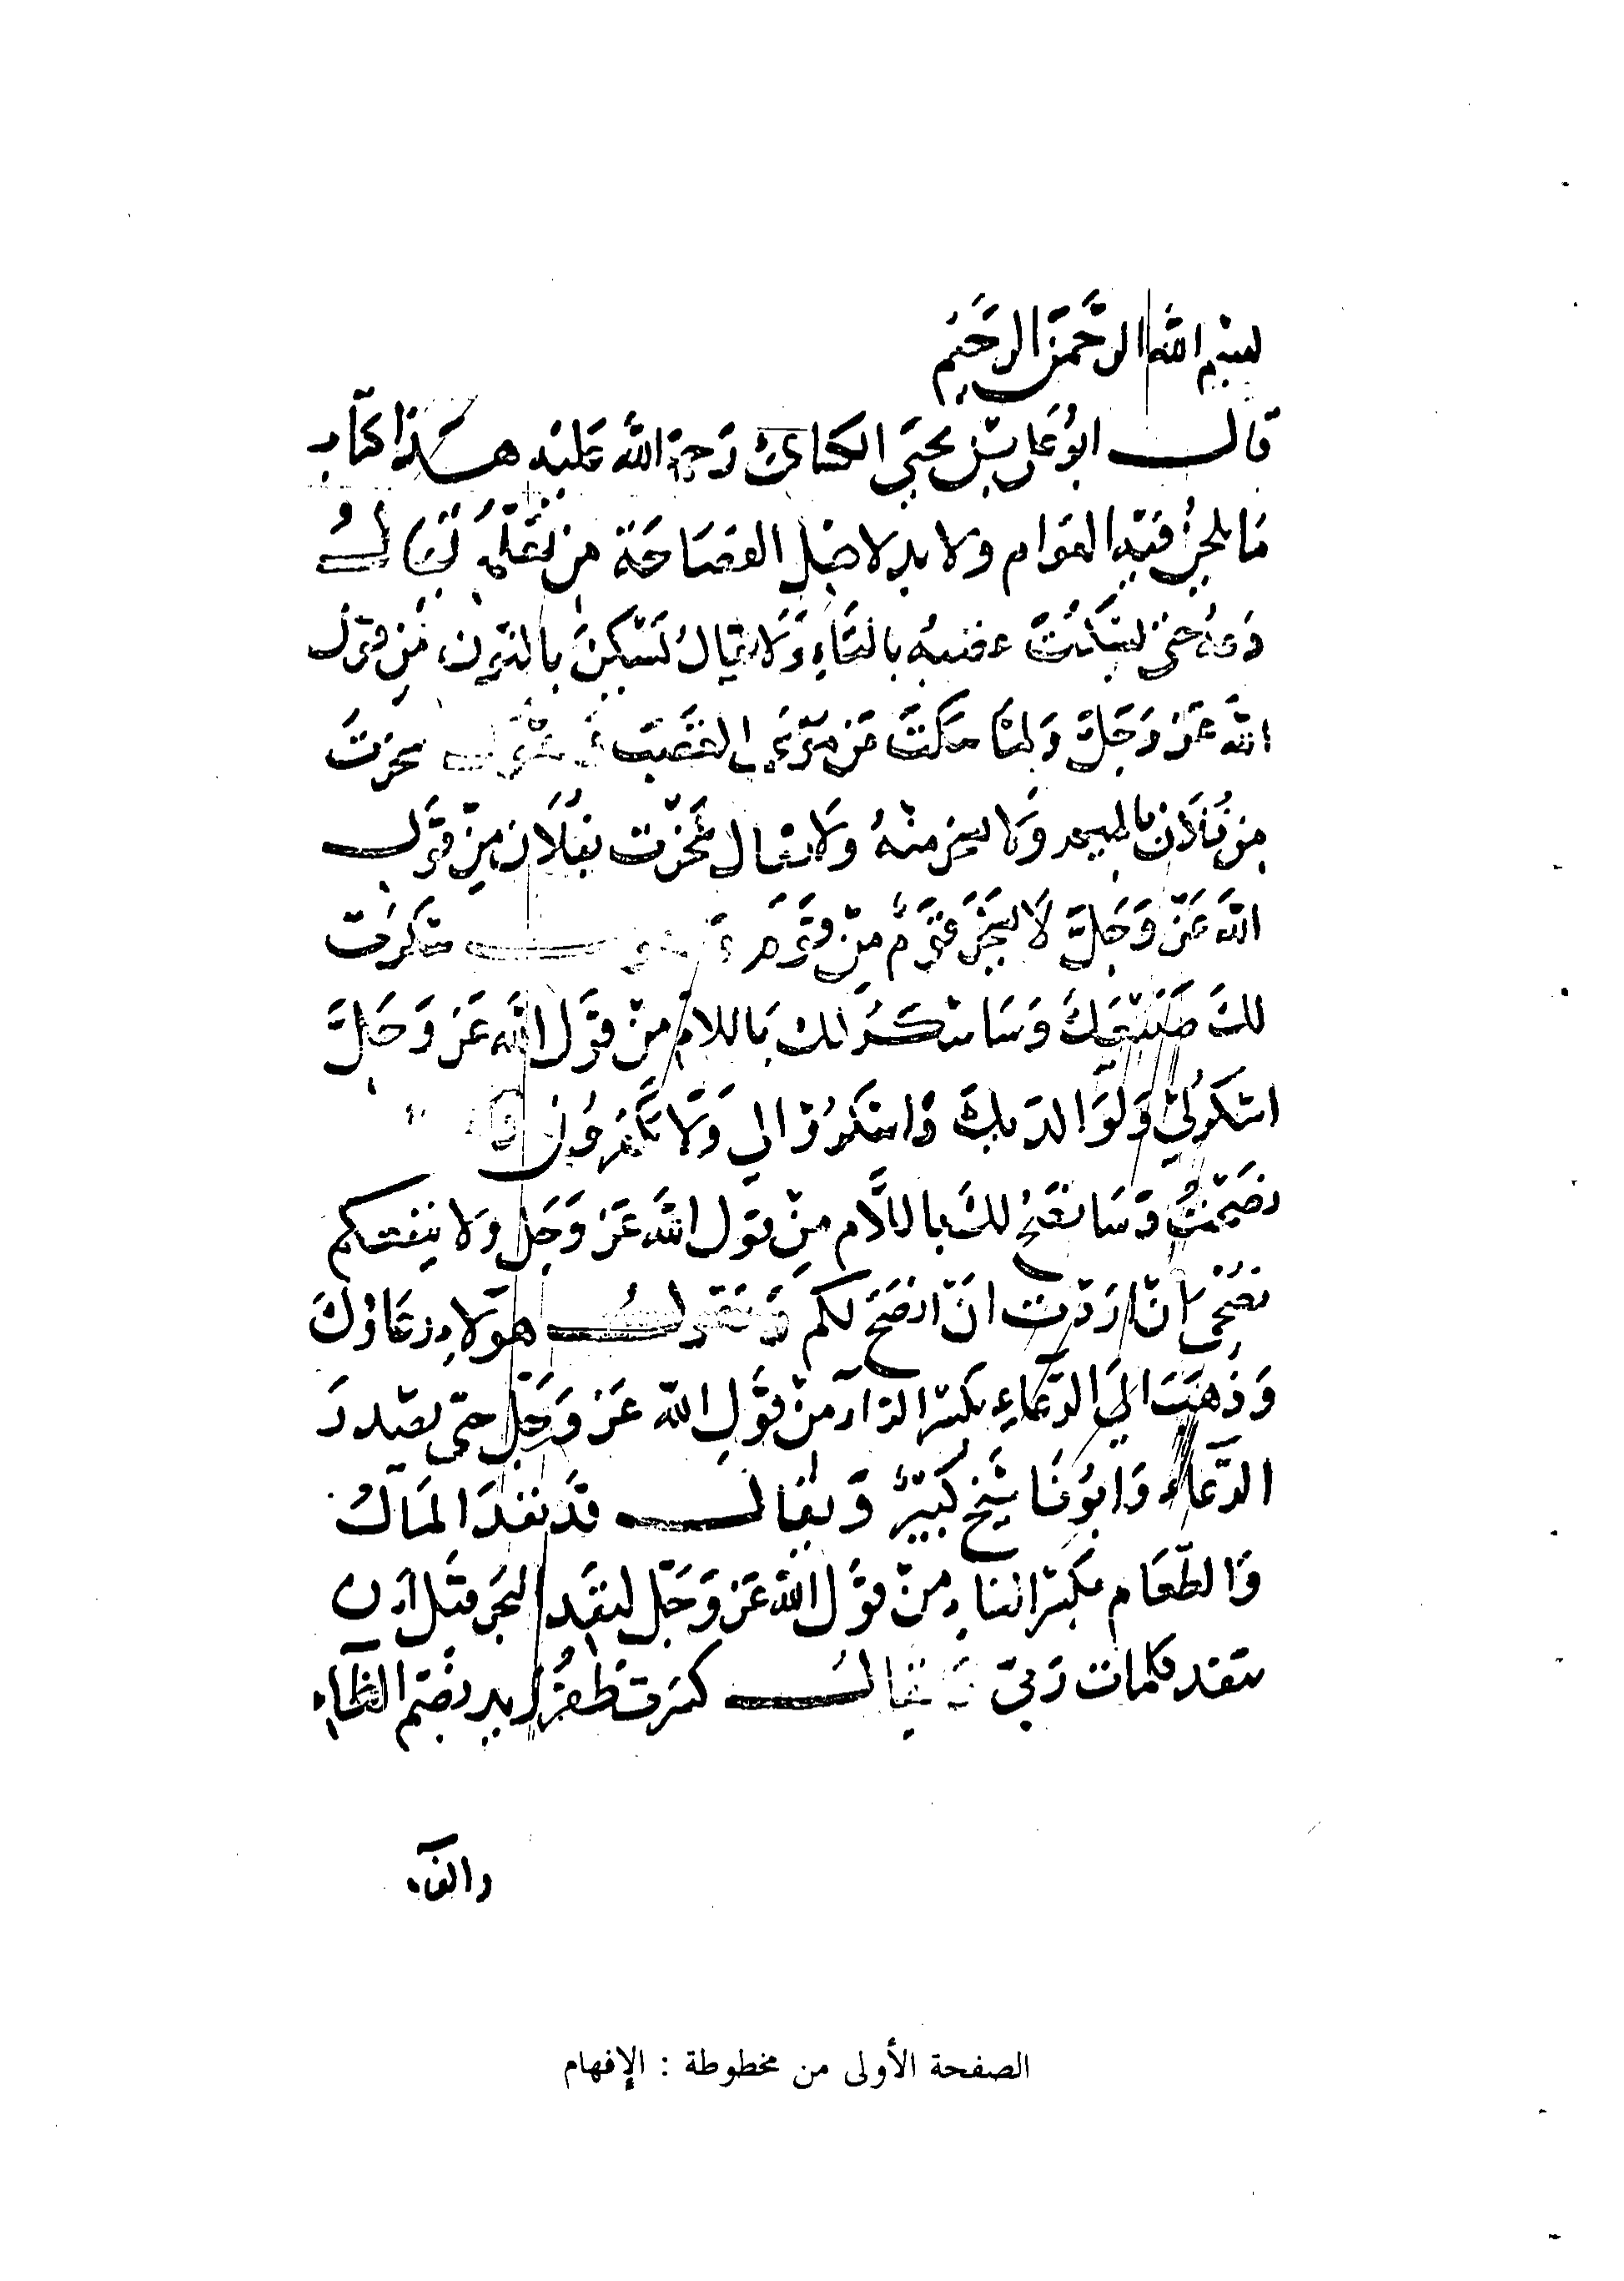 بسم الله الرحمن الرحيم
قال ابو على بن يحيى الكسائى رحمة الله عليه هذا كتاب
ما يلحن فيه العوام ولا بد لاهل الفصاحة من
دعه حتى يسكت بالتاء ولا يقال يسكن بالنون من قول
الله عز وجل ولما سكت عن موسى الغضب سخرت
من فلان ولا يقال سخرت بفلان من قول
الله عز وجل لا يسخر قوم من قوم شكرت
لك وسا شكر لك باللام من قول الله عز وجل
اشكر لي ولوالديك واشكروا لي ولا تكفرون
نصحت لك باللام من قول الله عز وجل ولا ينفعكم
نصحي ان اردت ان انصح لكم وتقول هولاء رعاوك
وذهبت الي الرعاء بكسر الرا من قول الله عز وجل حتى يصدر
الرعاء وابونا شيخ كبير ويقال قد نفد المال
والطعام بكسر الفاء من قول الله عز وجل لنفد البحر قبل ان
تنفد كلمات ربي ويقال كسرت ظفر زيد بضم الظاء
والفاء
الصفحة الأولى من مخطوطة : الإفهام